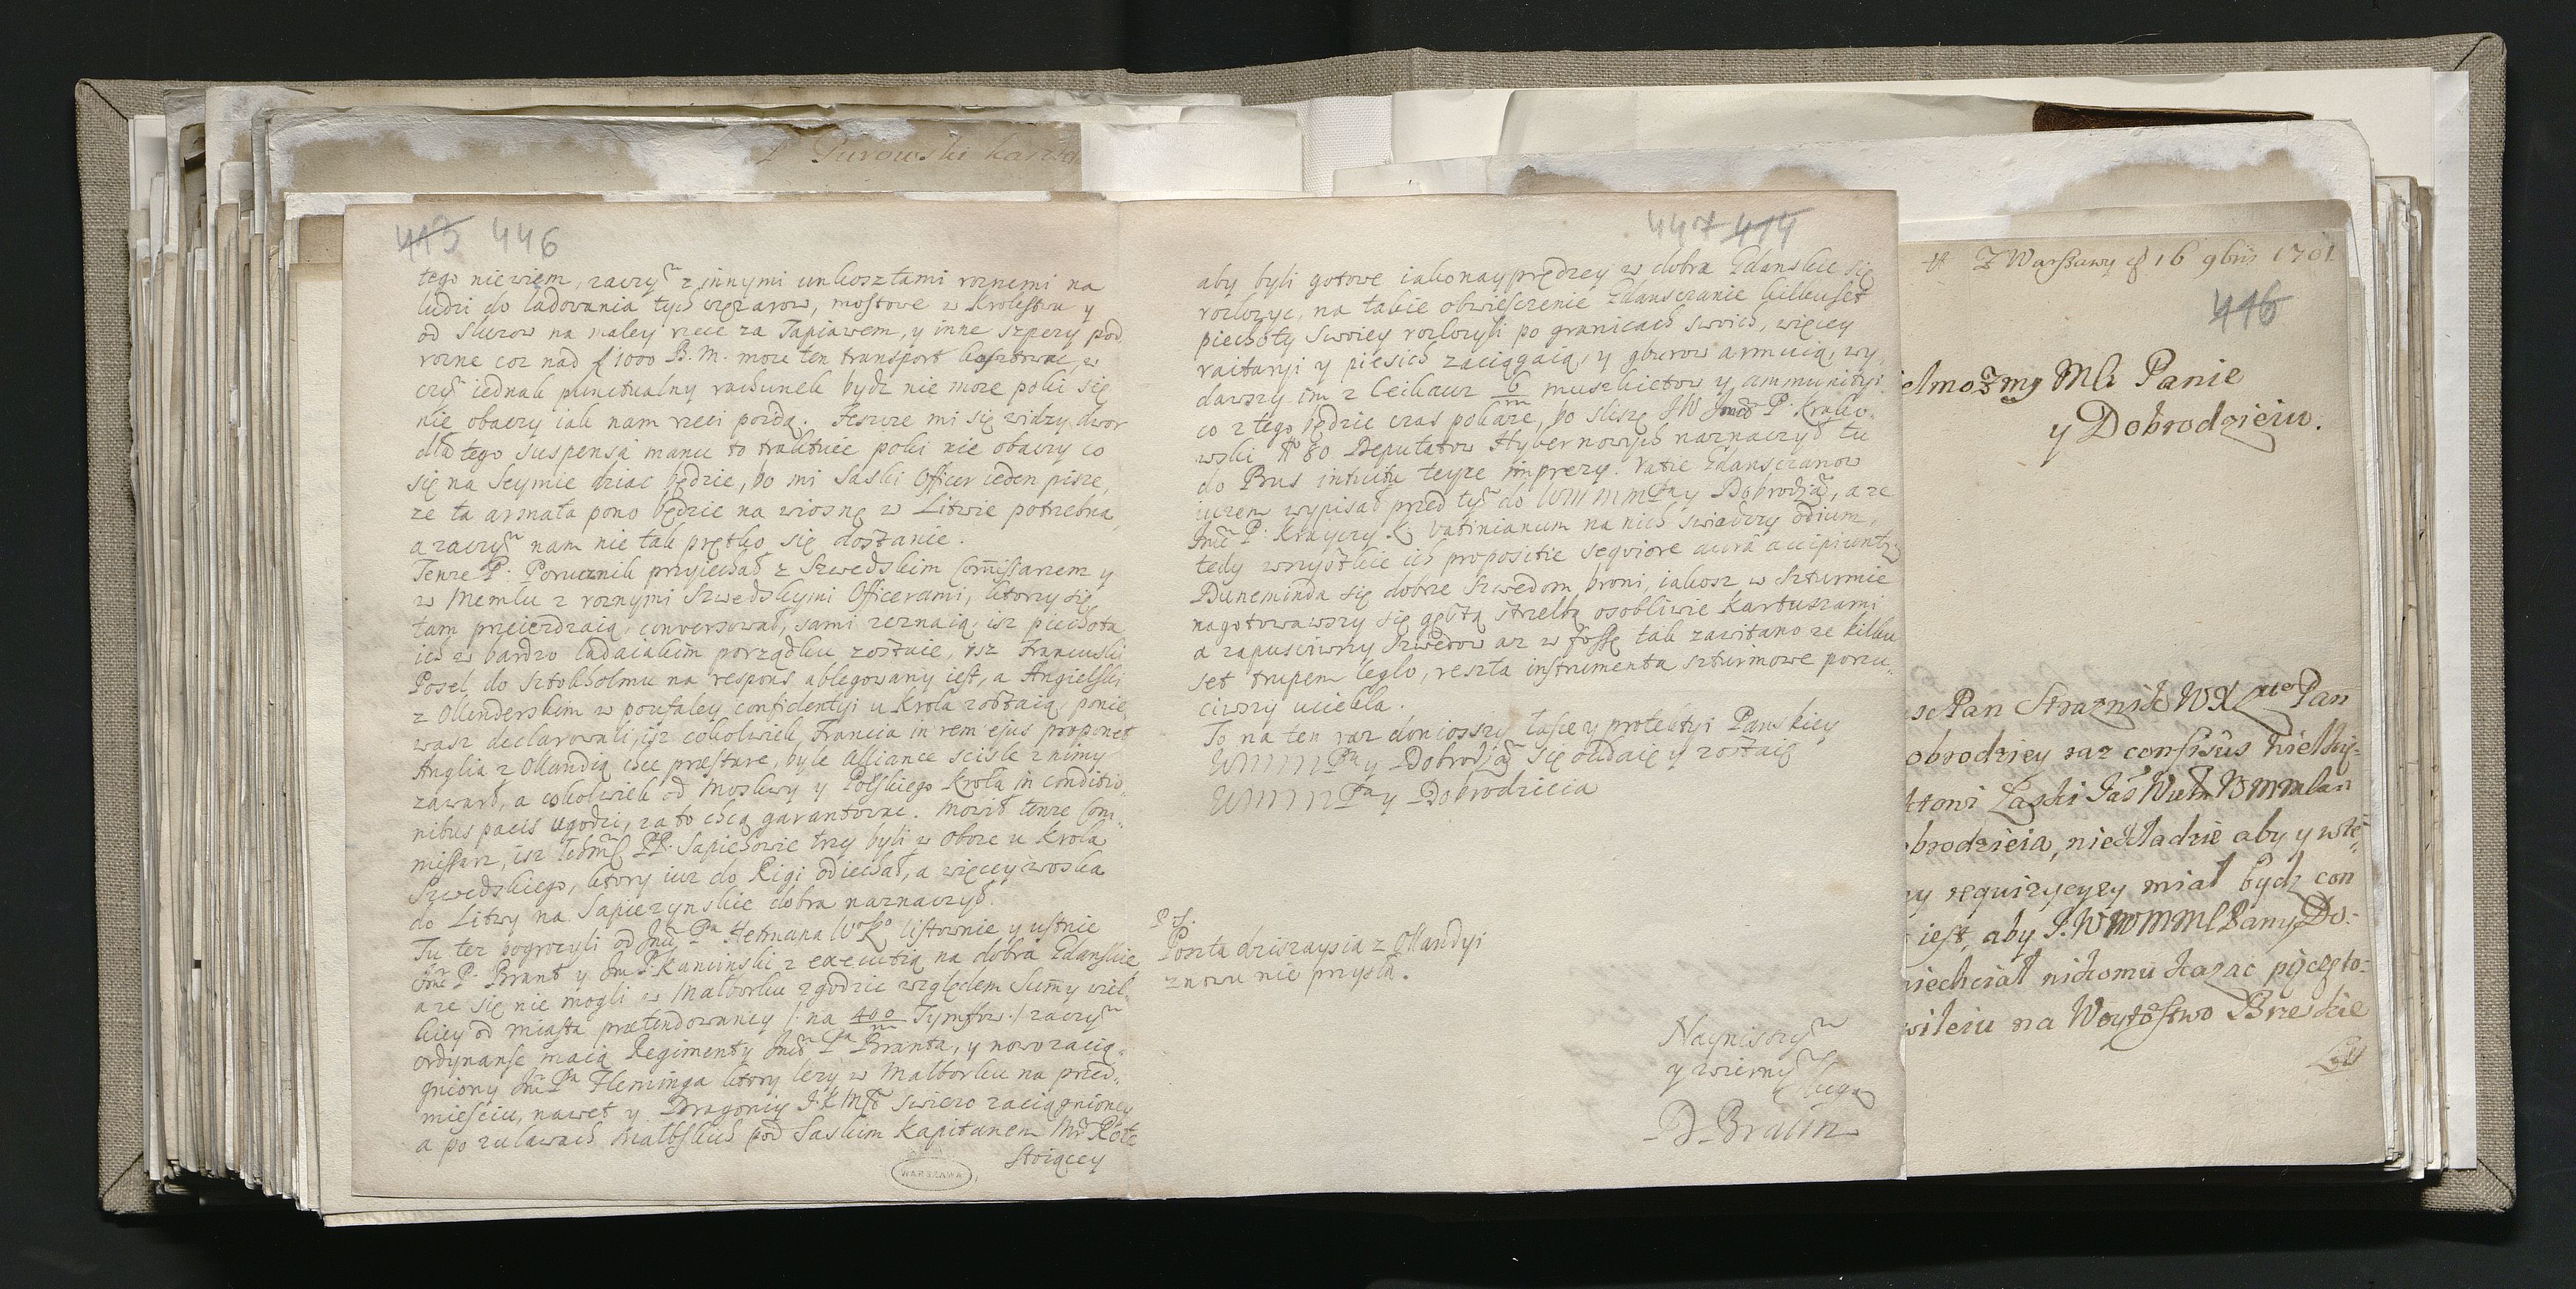 L Purowski
413 446
tego niewiem, zaczym z innymi unkosztami roznemi na
ludzi do ladowania tych cięzarow, mostowe w Krolestwu y
od sluzow na maley rzece za Tapiawem, y inne szpezy pod
rozne coz nad f 1000 B. M. moze ten transport kosztowac, w
czym iednak punctualny rachunek bydz nie moze poki się
nie obaczy iak nam rzeci poida. Jeszcze mi się widzy dwor
dla tego suspensa manu to traktuie poki nie obaczy co
się na Seymie dziac będzie, bo mi Saski Officer ieden pisze,
ze ta armata pono będzie na wiosnę w Litwie potrzebna
a zaczym nam nie tak prętko się dostanie.
Tenze P. Porucznik przyiechał z Szwedskim Com̃issarzem y
w Memlu z roznymi Szwedskymi Officerami, ktorzy się
tam przeierdzaią, conversował, sami zeznaią, isz piechota
ich w bardzo ladaiakim porządku zostaie, isz Francuski
Posel do Sztokholmu na respons ablegowany iest, a Angielski
z Ollenderskim w poufaley confidentyi u Krola zostaią, ponie-
wasz declarowali, isz cokolwiek Francia in rem ejus proponet
Anglia z Ollandią chce præstare, byle Alliance scisle z nimy
zawarł, a cokolwiek od Moskwy y Polskiego Krola in conditio-
nibus pacis ugodzi, za to chcą garantowac. Mowił tenze Com-
missarz, isz Ichm PP. Sapiehowie trzy byli w Obozie u Krola
Szwedskiego, ktory iuz do Rigi odiechał, a więcey woska
do Litwy na Sapiezynskie dobra naznaczył.
Tu tez pogrozyli od Jmci Pa Hetmana WoKo listownie y ustnie
Jmc P. Brant y Jm P. Kaminski z executią na dobra Gdanskie
a ze się nie mogli w Malborku zgodzic względem Sum̃y wiel-
kiey od Miasta prætendowaney /: na 400/m Tymfow :/ zaczym
ordynanse maią Regimenty Jmci Pa Branta, y nowo zacią-
gniony Jmci Pa Fleminga ktory lezy w Malborku na przed-
mieściu, nawet y Dragoniy J.K.Mści swiezo zaciągnioney
a po zulawach Malbskich pod Saskim Kapitanem Mr Rote
stoiącey
WARSZAWA
447 414
aby byli gotowe iakonayprędzey w dobra Gdanskie się
rozlozyc, na takie obwiesczenie Gdansczanie kilkuset
piechoty swoiey rozlozyli po granicach swoich, więcey
raitaryi y piesich zaciągaią, y gburow armuią, wy-
dawszy im z Ceikauz 6/m muszkietow y ammunityi
co z tego będzie czas pokaze, bo slisze JW Jmci P. Krako-
wski No 80 Deputatow Hybernowych naznaczył tu
do Prus intuitu teyze imprezy. Ratie Gdansczanow
iuzem wypisał przed tym do WMMMPa y Dobrodzia, a ze
Jmc P. Krayczy K. Vatinianum na nich swiadczy odium,
tedy wszystkie ich propositie sequiore aura accipiuntr
Duneminda się dobrze Szwedom broni, iakosz w Szturmie
nagotowawszy się gęstą strzelbą osobliwie kartuszami
a zapusciwszy Szwedow az w fossę tak zawitano ze kilku
set trupem leglo, reszta instrumenta szturmowe porzu-
ciwszy uciekla.
To na ten raz doniosszy, lasce y protektyi Panskiey
WMMMPa y Dobrodzia się oddaię y zostaię
WMMMPa y Dobrodzieia
P.S.
Poszta dziszaysia z Ollandyi
znowu nie przysla.
Nayniszym
y wiernym
sluga
D. Braun
Z Warszawy d 16 9bris 1701
416
elmozny Mći Panie
y Dobrodzieiu.
Pan Straznik WX Pan
obrodziey raz confisus wielkie-
brodzieia, nie kladzie aby y wtę-
ny requizycyey miał bydz con
iest, aby J.W WMMPan y Do-
niechciał nikomu kazac pieczęto-
wileiu na Woytostwo Brzeskie